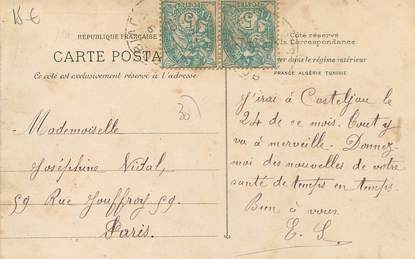 15 €
RÉPUBLIQUE FRANÇAISE
CARTE POSTA
Ce côté est exclusivement réservé à l'adresse
5 5
Côté réservé
à la Correspondance
dans le régime intérieur
FRANCE ALGÉRIE TUNISIE
30
Mademoiselle
Joséphine Vidal,
59 Rue Jouffroy 59.
Paris.
J'irai à Casteljau le
24 de ce mois. Tout y
va à merveille. Donnez-
moi des nouvelles de votre
santé de temps en temps.
Bien à vous
E. S.